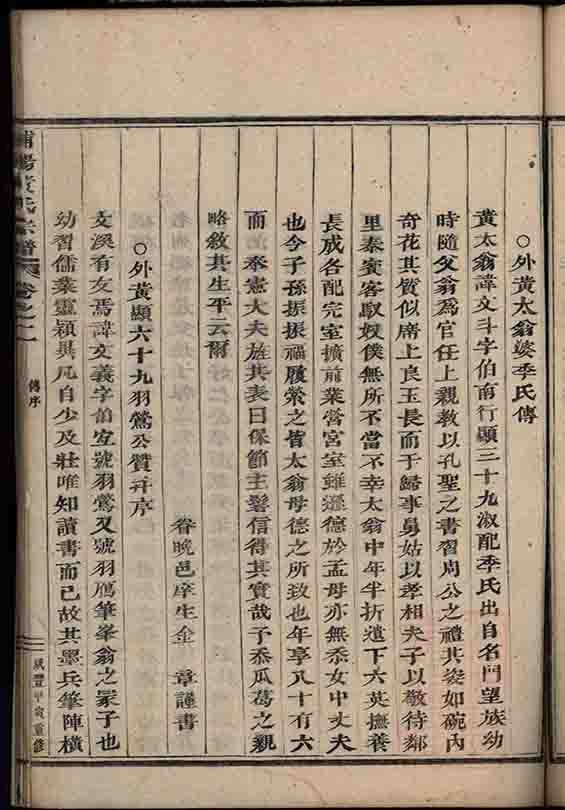 ○外黃太翁婆季氏傳
黃太翁諱文斗字伯南行顯三十九淑配季氏出自名門望族幼
時隨父翁爲官任上親教以孔聖之書習周公之禮其姿如碗內
奇花其質似席上良玉長而于歸事舅姑以孝相夫子以敬待鄰
里奉賓客馭奴僕無所不當不幸太翁中年半折遺下六英撫養
長成各配完室擴前業營宮室雖遜德於孟母亦無忝女中丈夫
也今子孫振振福履縈之皆太翁母德之所致也年享八十有六
而 奉憲大夫旌其表曰保節主髻信得其實哉予忝瓜葛之親
略敘其生平云爾
眷晚邑庠生金 章謹書
○外黃顯六十九羽鶯公贊幷序
文溪有友焉諱文義字伯宜號羽鶯又號羽鴈筆峯翁之冢子也
幼習儒業靈穎異凡自少及壯唯知讀書而已故其墨兵筆陣橫
浦陽黃氏宗譜 卷之一 傳序
咸豐甲寅重修